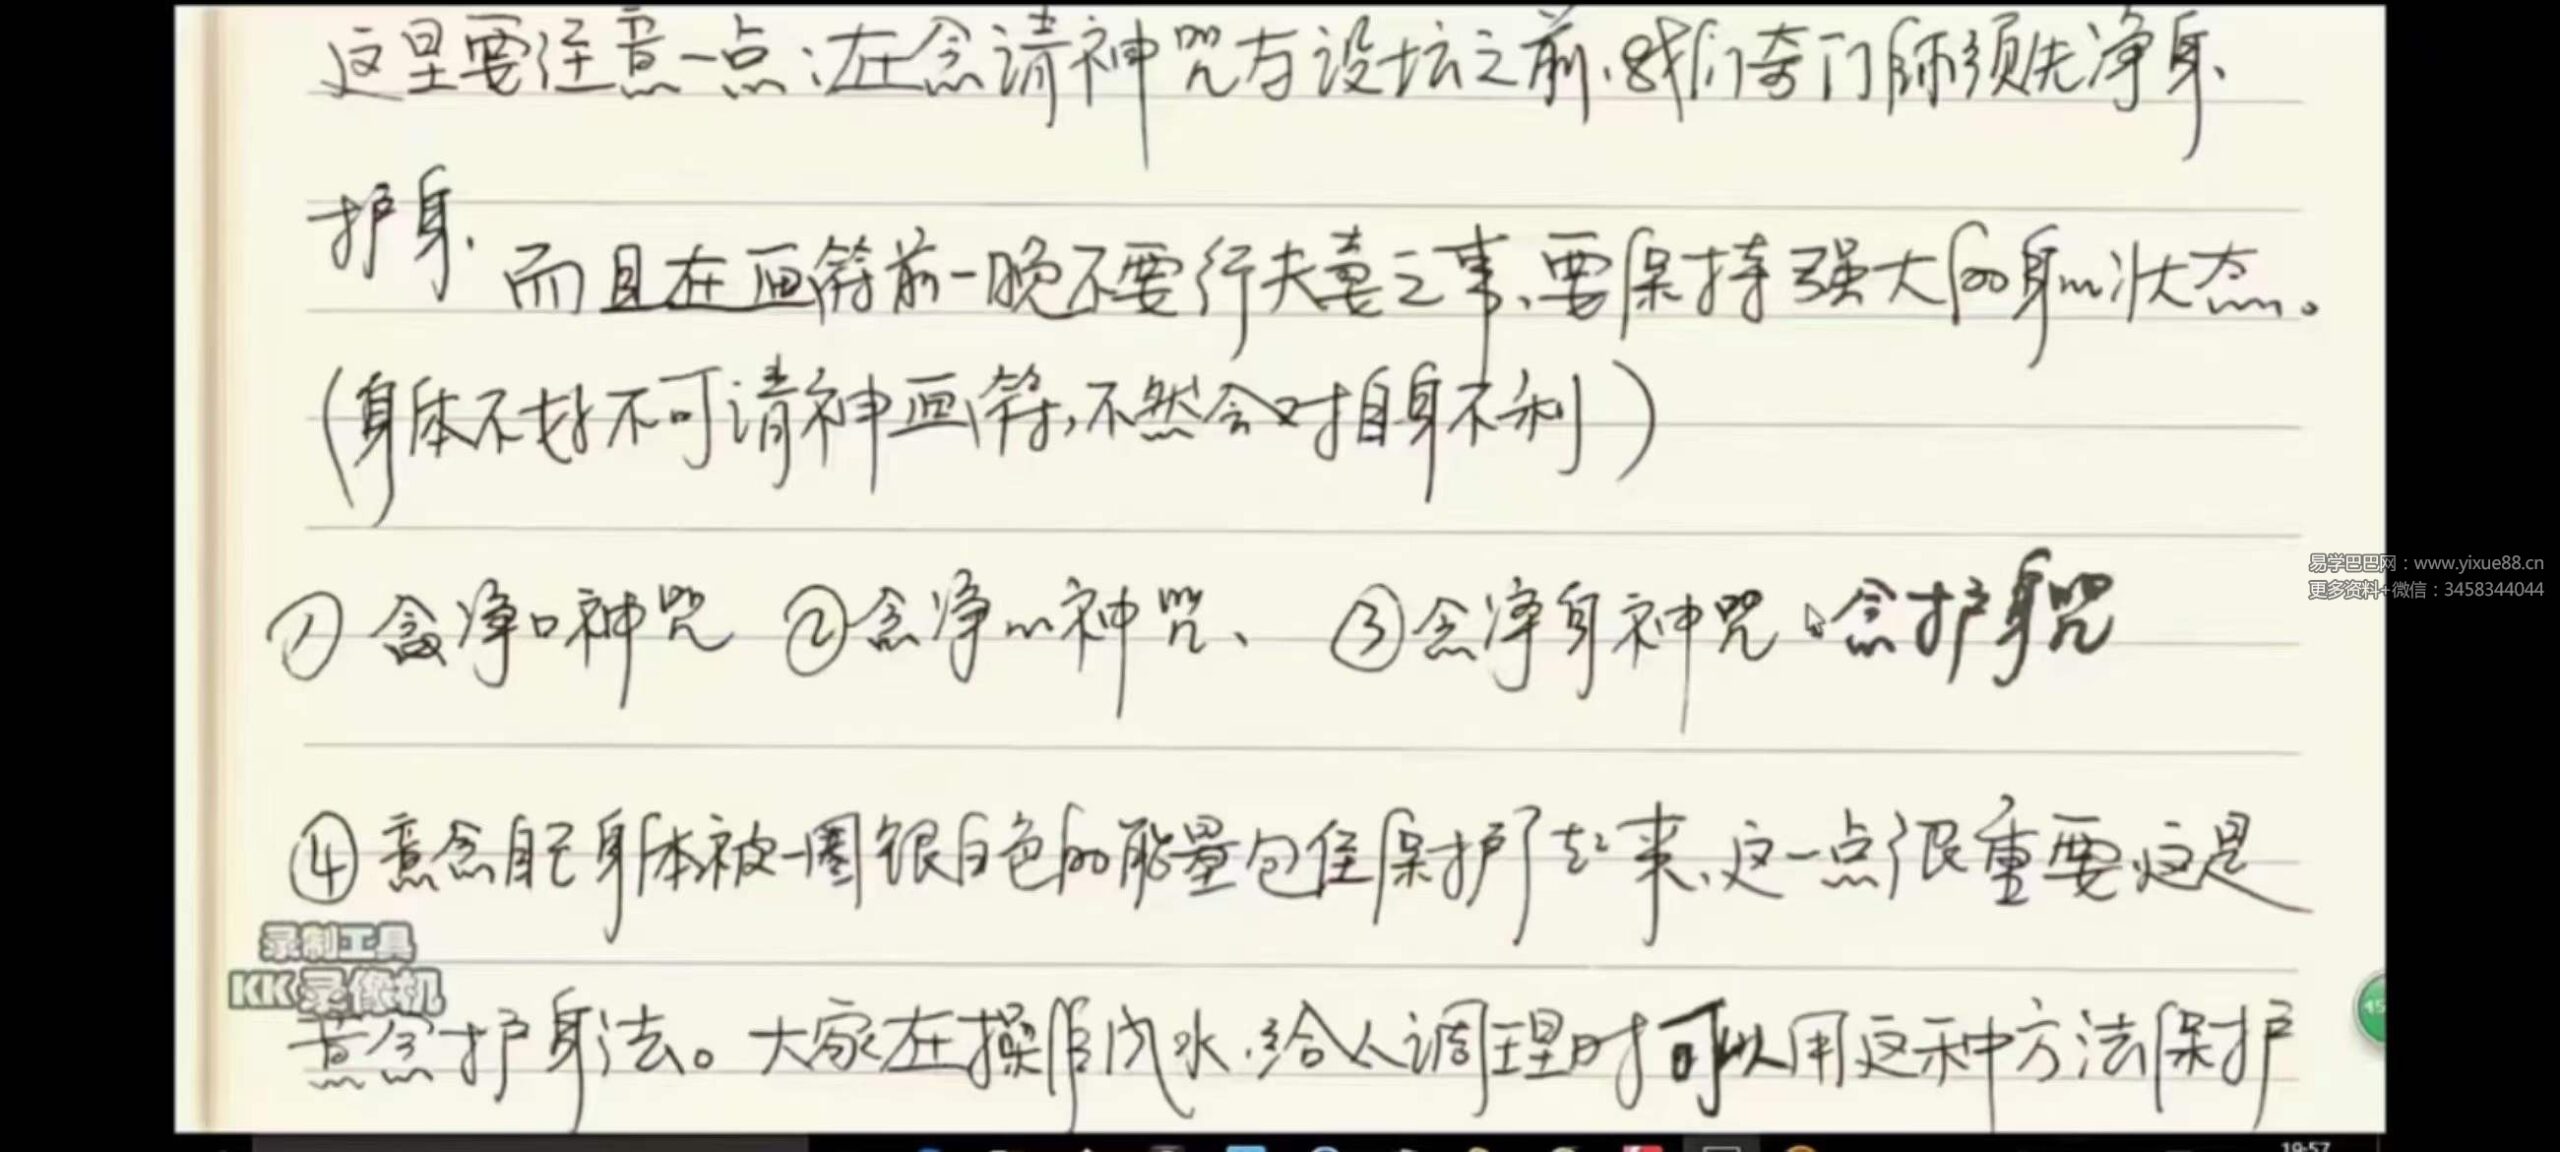 这里要注意一点:在念请神咒与设坛之前,我们奇门师须先净身、
护身.而且在画符前一晚不要行夫妻之事、要保持强大的身心状态。
(身体不好不可请神画符,不然会对自身不利)
① 念净口神咒 ②念净心神咒、 ③念净身神咒、念护身咒
④意念自己身体被一圈银白色的能量包住保护了起来、这一点很重要.这是
意念护身法。大家在操作风水.给人调理时可以用这种方法保护
易学巴巴网:www.yixue88.cn
更多资料+微信:3458344044
录制工具
KK录像机
45
19:57